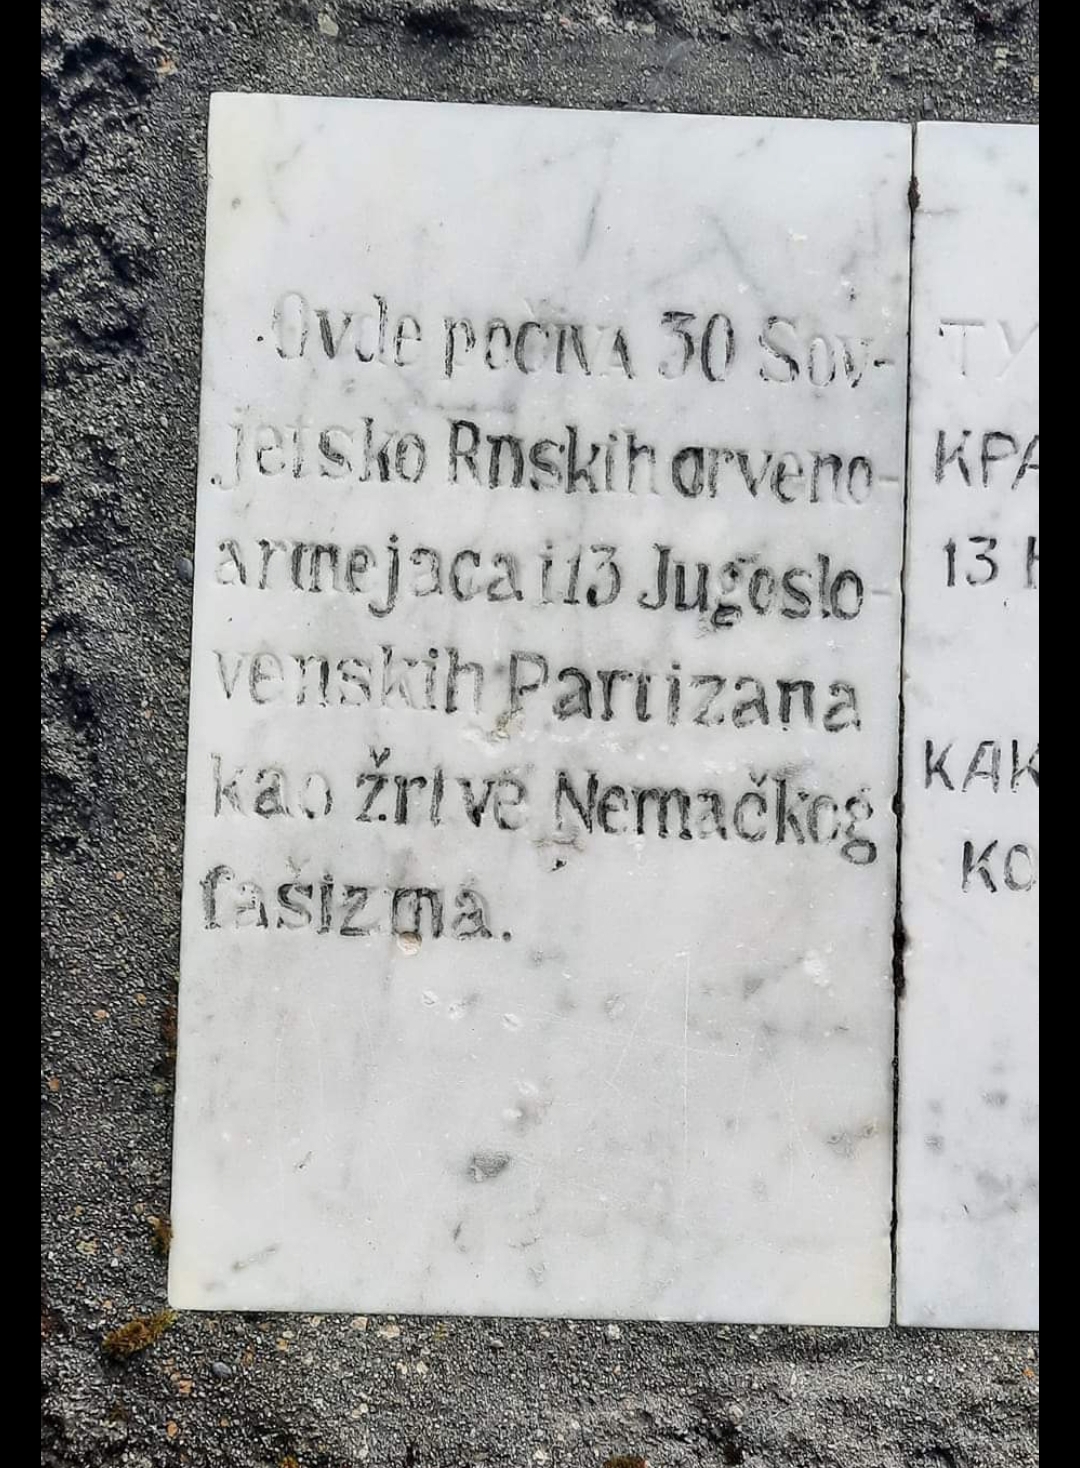 Ovde počiva 30 Sov-
jetsko Rnskih crveno-
armejaca i 13 Jugoslo-
venskih Partizana
kao žrtve Nemačkog
fašizma.
ТУ
КРА
13
КАК
КО